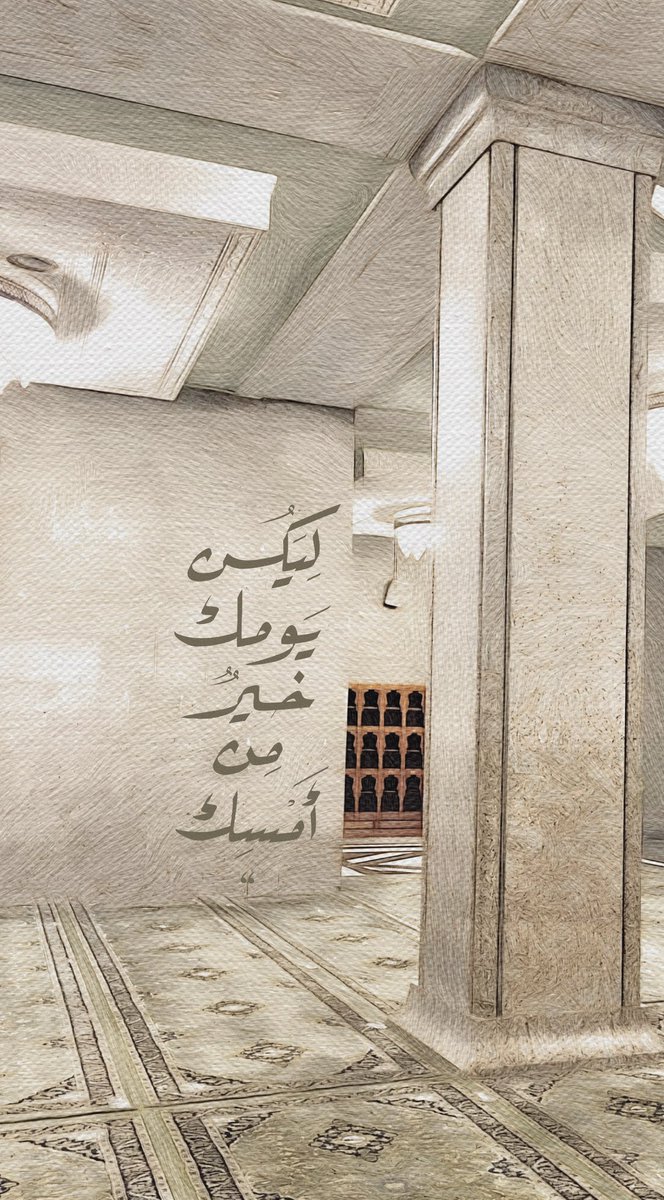 لِيَكُن
يَومك
خيرٌ
مِن
أَمْسِك
“